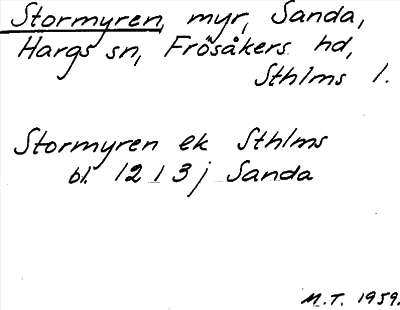 Stormyren, myr, Sanda,
Hargs sn, Frösåkers hd,
Sthlms l.
Stormyren ek Sthlms
bl. 12 1 3 j Sanda
M.T. 1959.